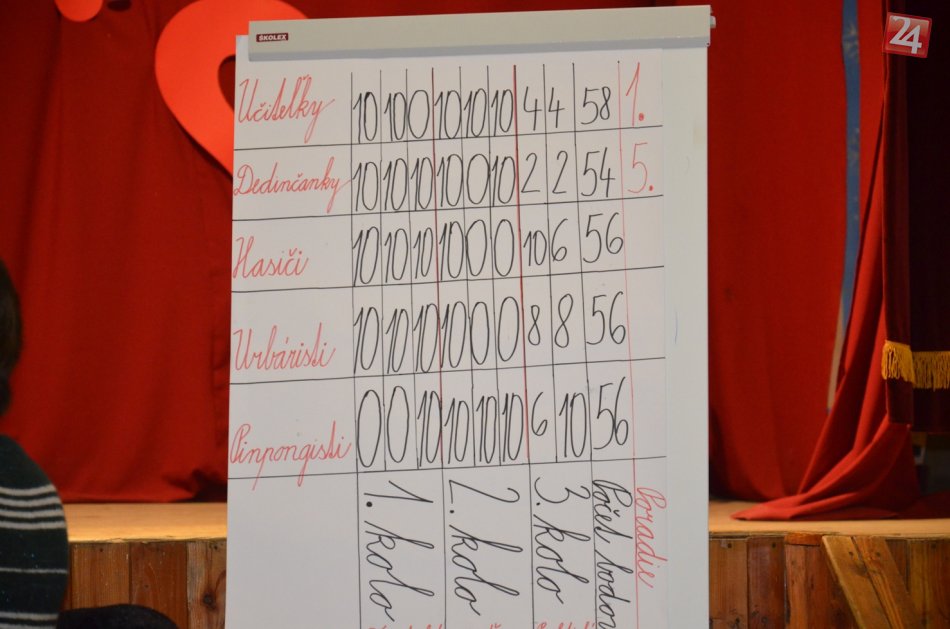 ŠKOLEX
24
Učiteľky 10 10 0 10 10 10 4 4 58 1.
Dedinčanky 10 10 10 10 0 10 2 2 54 5.
Hasiči 10 10 10 10 0 0 10 6 56
Urbáristi 10 10 10 10 0 0 8 8 56
Pinpongisti 0 0 10 10 10 10 6 10 56
1. kolo
2. kolo
3. kolo
Počet bodov
Poradie